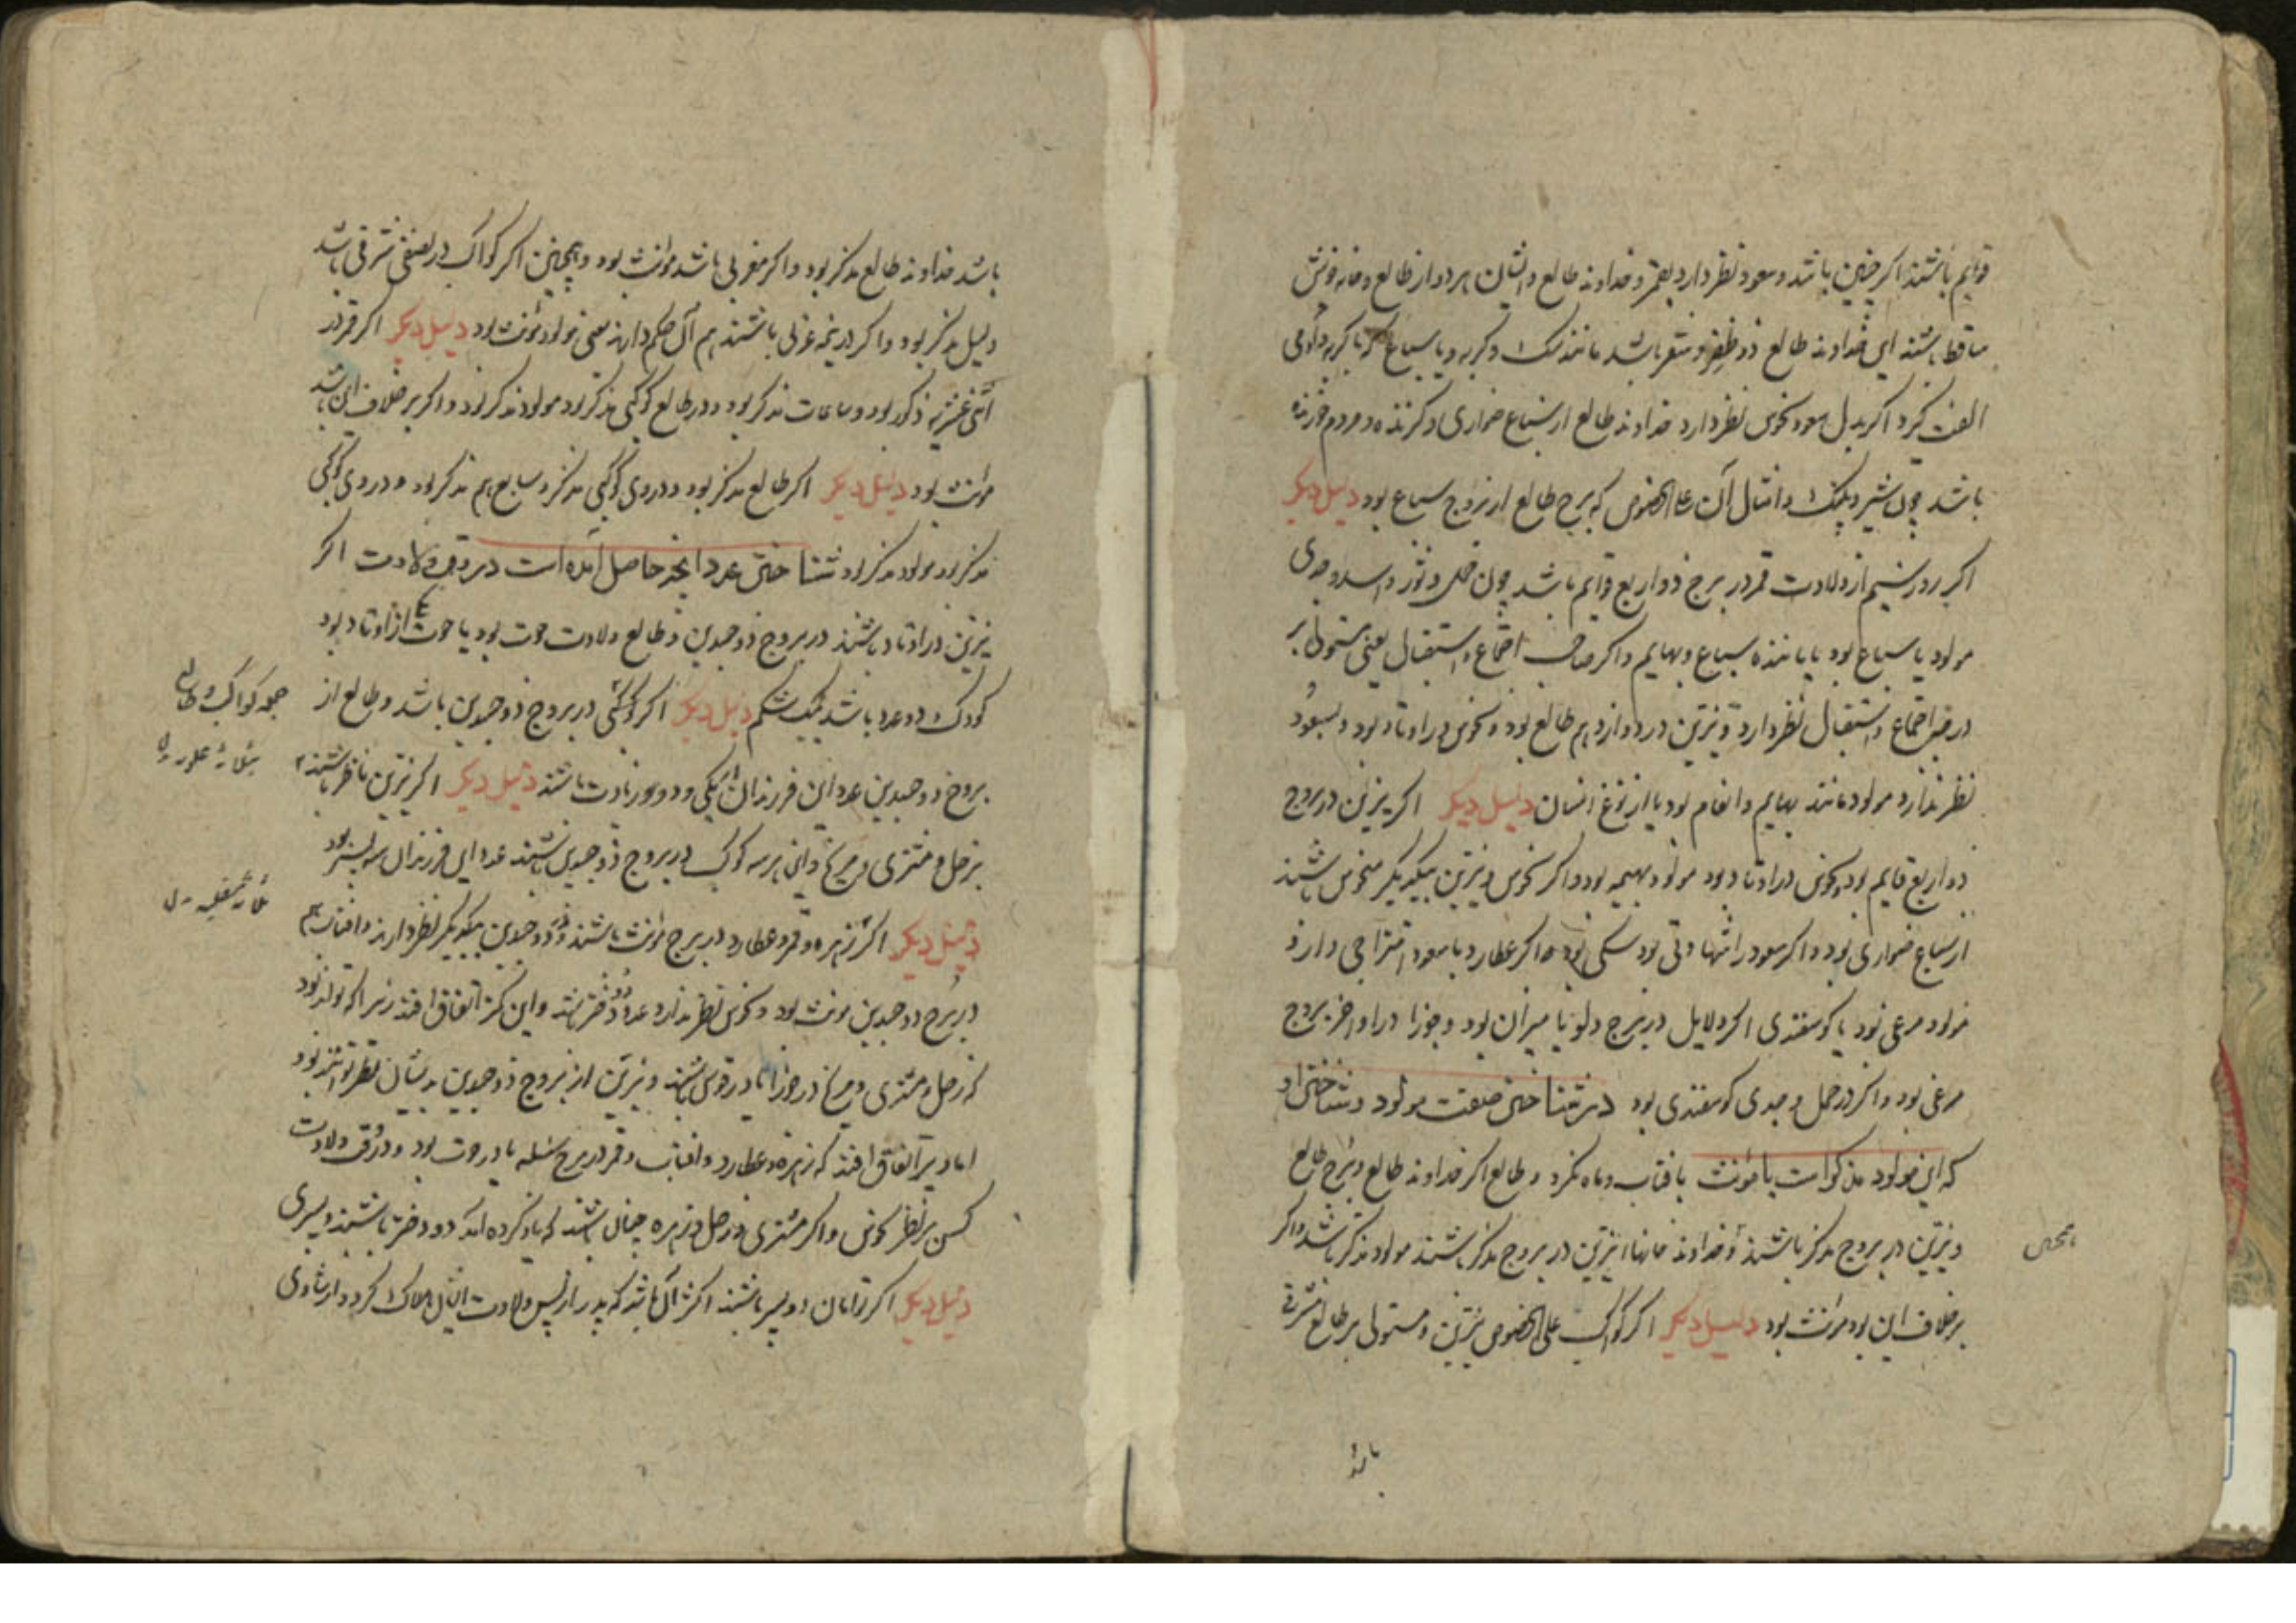 قوایم باشند اگر چنین باشد و سعود نظر دارد بقمر و خداوند طالع و ایشان هر دو از طالع و خانه خویش
ساقط باشند این خداوند طالع ذو ظفر و شعر باشد مانند سک و کربه و یا سباع که با کربه و آدمی
الفت کیرد اکر بدل سعود نحوس نظر دارد خداوند طالع از سباع ضواری و کزنده و مردم خورنده
باشد چون شیر و پلنک و امثال آن علی الخصوص که برج طالع از بروج سباع بود دلیل دیکر
اکر روز سیم از ولادت قمر در برج ذو اربع قوایم باشد چون حمل و ثور و اسد و جدی
مولود یا سباع بود یا ماننده سباع و بهایم و اکر صاحب اجتماع و استقبال یعنی مستولی بر
در جز اجتماع و استقبال نظر دارد و نیرین در دوازدهم طالع بود و نحوس در اوتاد بود و بسعود
نظر ندارد مولود مانند بهایم و انعام بود یا از نوع انسان دلیل دیکر اکر نیرین در بروج
ذو اربع قایم بود و نحوس در اوتاد بود مولود بهیمه بود و اکر نحوس و نیرین بیکدیکر منحوس باشند
از سباع ضواری بود و اکر سعود را شهادتی بود سکی بود و اکر عطارد با سعود امتزاجی دارد
مولود مرغی بود یا کوسفندی اکر دلایل در برج دلو یا میزان بود و جوزا در اواخر بروج
مرغی بود و اکر در حمل و جدی کوسفندی بود در شناختن صفت مولود و شناختن او
که این مولود مذکر است یا مؤنث بافتاب و ماه نکرد و طالع اکر خداوند طالع و برج طالع
و نیرین در بروج مذکر باشند و خداوند خانهاء نیرین در بروج مذکر باشند مولود مذکر باشد و اکر
برخلاف این بود مؤنث بود دلیل دیکر اکر کواکب علی الخصوص نیرین و مستولی بر طالع مشرقی
باشد
باشد خداوند طالع مذکر بود و اکر مغربی باشد مؤنث بود و همچنین اکر کواکب در نصف شرقی باشد
دلیل مذکر بود و اکر در نیمه غربی باشند هم آن حکم دارند یعنی مولود مؤنث بود دلیل دیکر اکر قمر در
اثنی عشریه ذکور بود و ساعات مذکر بود و در طالع کوکبی مذکر بود مولود مذکر بود و اکر برخلاف این باشد
مؤنث بود دلیل دیکر اکر طالع مذکر بود و در وی کوکبی مذکر و سابع هم مذکر بود و در وی کوکبی
مذکر بود مولود مذکر بود شناختن عدد انچه حاصل آمده است در وقت ولادت اکر
نیرین در اوتاد باشند در بروج ذو جسدین و طالع ولادت حوت بود یا حوت از اوتاد بود
کودک دو عدد باشد بیک شکم دلیل دیکر اکر کوکبی در بروج ذو جسدین باشد و طالع از
بروج ذو جسدین عدد این فرزندان یکی و دو و زیادت باشند دلیل دیکر اکر نیرین ناظر باشند
بزحل و مشتری و مریخ و این هر سه کوکب در بروج ذو جسدین باشند عدد این فرزندان سه پسر بود
دلیل دیکر اکر زهره و قمر و عطارد در برج مؤنث باشند و ذو جسدین بیکدیکر نظر دارند و افتاب هم
در برج ذو جسدین مونث بود و نحوس نظر ندارد عدد دو دختر باشد و این کمتر اتفاق افتد زیرا که تواند بود
که زحل و مشتری و مریخ در جوزا یا در قوس باشند و نیرین از بروج ذو جسدین بدیشان نظر توانند بود
اما دیر اتفاق افتد که زهره و عطارد و افتاب و قمر در برج سنبله یا در حوت بود و در وقت ولادت
کسی نظر نحوس و اکر مشتری و زحل و زهره چنان باشند که یاد کرده آمد دو دختر باشند و پسری
دلیل دیکر اکر توامان دو پسر باشند اکثر آن باشد که پدر از پس ولادت ایشان هلاک کردد از شادی